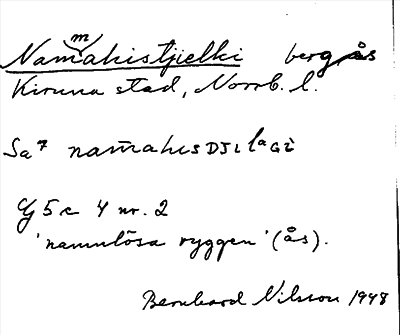 Nammahistjielki bergås
Kiruna stad, Norrb. l.
Sa7 nam̄ahisDJIlaGi
Gj 5 c 4 nr. 2
'namnlösa ryggen' (ås).
Bernhard Nilsson 1948